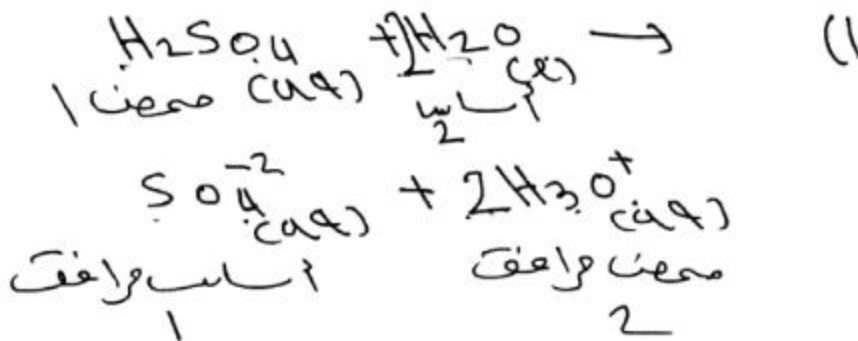 (1 H₂SO₄ (aq) + 2H₂O (l) →
حمض 1 أساس 2
SO₄⁻² (aq) + 2H₃O⁺ (aq)
أساس مرافق 1 حمض مرافق 2